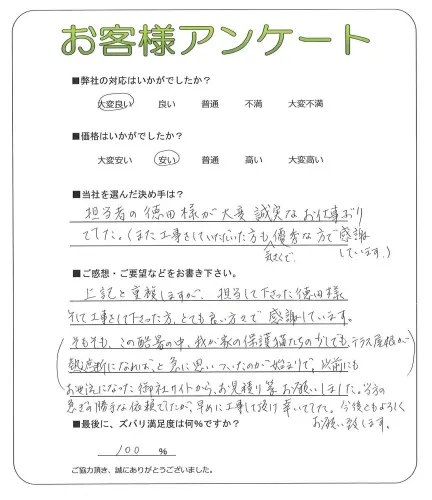 お客様アンケート
■弊社の対応はいかがでしたか?
大変良い 良い 普通 不満 大変不満
■価格はいかがでしたか?
大変安い 安い 普通 高い 大変高い
■当社を選んだ決め手は?
担当者の徳田様が大変誠実なお仕事ぶり
でした。(また工事をしていただいた方も気さくで優秀な方で感謝
しています。)
■ご感想・ご要望などをお書き下さい。
上記と重複しますが、担当して下さった徳田様
そして工事をして下さった方、とても良い方々で感謝しています。
そもそも、この酷暑の中、我が家の保護猫たちの少しでもテラス屋根が
熱遮断になればと急に思いついたのが始まりで、以前にも
お世話になった御社サイトから、お見積り等お願いしました。当方の
急ぎの勝手な依頼でしたが、早めに工事して頂け幸いでした。今後ともよろしく
お願い致します。
■最後に、ズバリ満足度は何%ですか?
100 %
ご協力頂き、誠にありがとうございました。